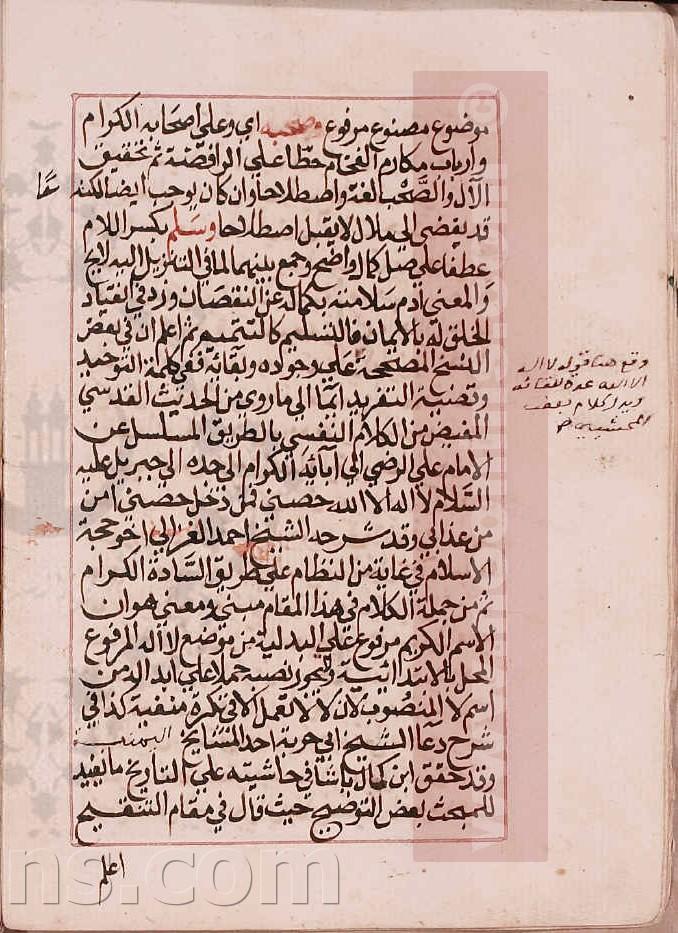 موضوع مصنوع مرفوع وصحبه اي وعلي اصحابه الكرام
وارباب مكارم الفخام حطا علي الرافضة ثم تحقيق
الآل والصَّحْب لغة واصطلاحا وان كان يوجب ايضا لكنه
قد يفضي الى ملال لا يقبل اصطلاحا وسَلَّم بكسر اللام
عطفا علي صل كما هو واضح وجمع بينهما لما في التنزيل اليه لايح
والمعني ادم سلامته بكماله عن النقصان وزد في انقياد
الخلق له بالايمان فالتسليم كالتتميم ثم اعلم ان في بعض
النسخ المصححة علي وجوده وبقائه ففي كلمة التوحيد
وتصنية التفريد ايما الي ما روي من الحديث القدسي
المفيض من الكلام النفسي بالطريق المسلسل عن
الامام علي الرضي الي آبائه الكرام الي جده الي جبريل عليه
السَّلام لا اله الا الله حصني فمن دخل حصني امن
من عذابي وقد شرحه الشيخ احمد الغزالي اخو حجة
الاسلام في غاية من النظام علي طريق السَّادة الكرام
ثم من جملة الكلام في هذا المقام مبني ومعني هو ان
الاسم الكريم مرفوع علي البدلية من موضع لا اله المرفوع
المحل بالابتدائية ولا يجوز نصبه حملا علي ابداله من
اسم لا المنصوب لان لا لا تعمل الا في نكرة منفية كذا في
شرح دعا الشيخ ابي حربة احد المشايخ اليمنية
وقد حقق ابن كمال باشا في حاشيته علي التلويح ما يفيد
للمبحث بعض التوضيح حيث قال في مقام التنقيح
اعلم
وقع هنا قوله لا اله
الا الله عدة للقائه
كلام بعض
المحشيين